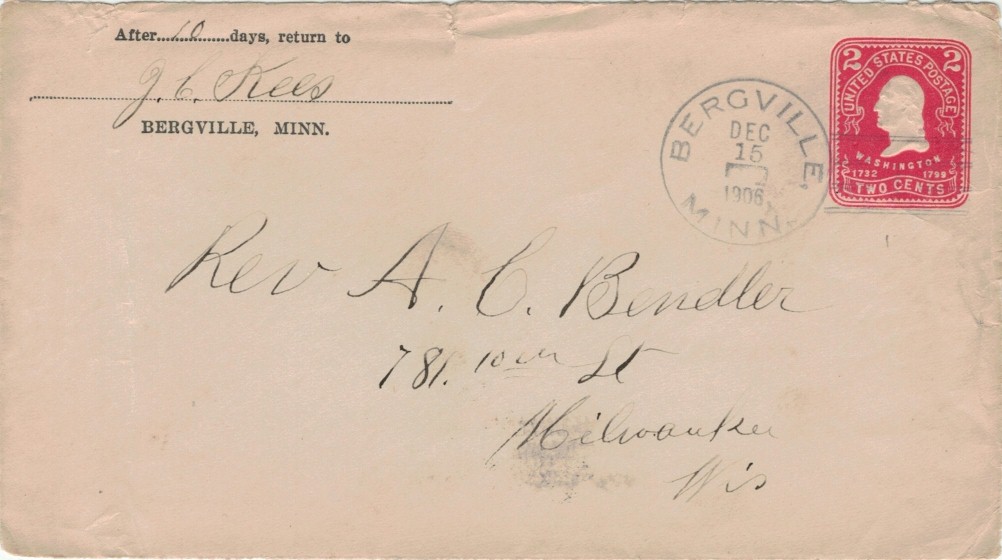 After....10....days, return to
J. C. Rees
BERGVILLE, MINN.
BERGVILLE,
DEC
15
1906
MINN.
2 2
UNITED STATES POSTAGE
WASHINGTON
1732 1799
TWO CENTS
Rev A. C. Bendler
781. 10th St
Milwaukee
Wis